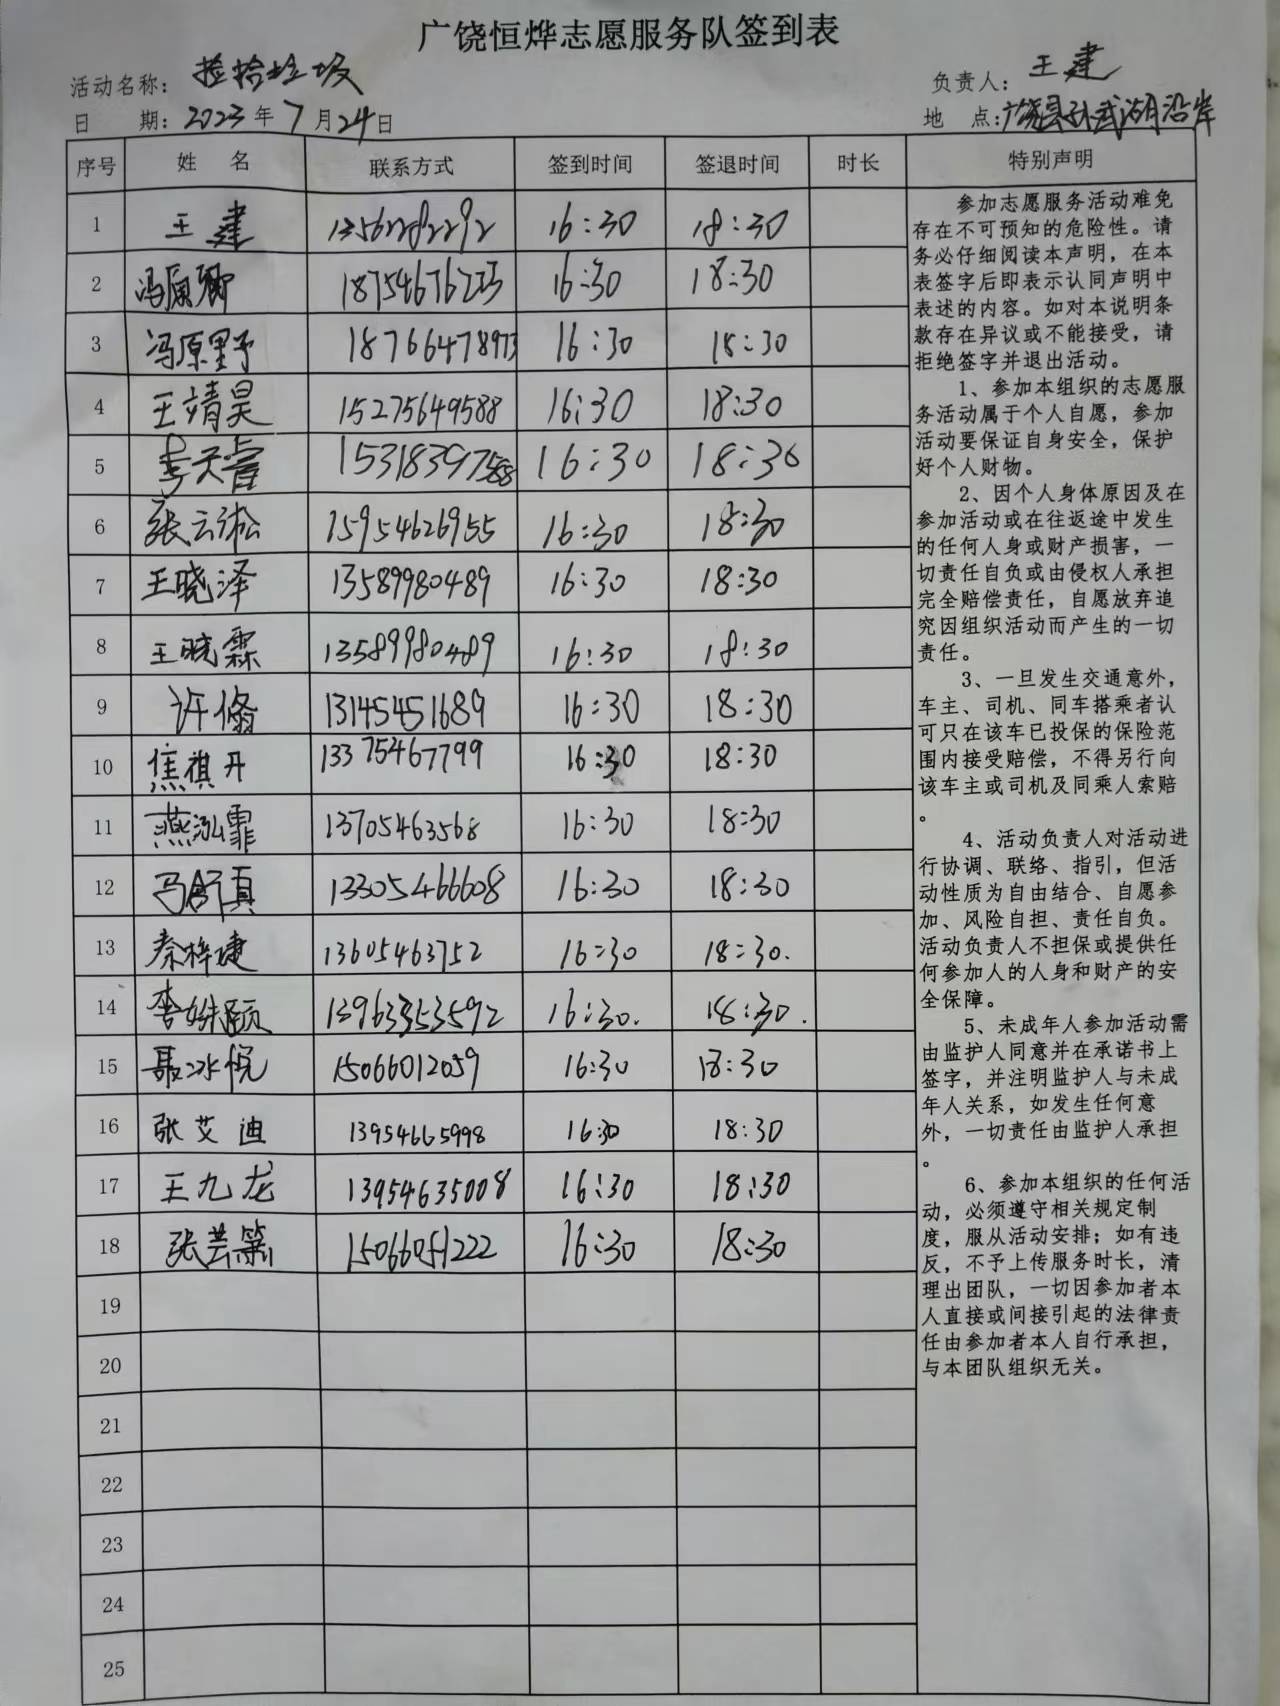 广饶恒烨志愿服务队签到表
活动名称：捡拾垃圾 负责人：王建
日 期：2023年7月24日 地 点：广饶县孙武湖沿岸
序号 姓 名 联系方式 签到时间 签退时间 时长 特别声明
1 王建 13562282292 16:30 18:30
2 冯原卿 18754676233 16:30 18:30
3 冯原野 18766478973 16:30 18:30
4 王靖昊 15275649588 16:30 18:30
5 李天睿 15318397588 16:30 18:30
6 张云淞 15954626955 16:30 18:30
7 王晓泽 13589980489 16:30 18:30
8 王晓霖 13589980489 16:30 18:30
9 许翛 13145451689 16:30 18:30
10 焦祺开 13375467799 16:30 18:30
11 燕泓霏 13705463568 16:30 18:30
12 冯舒真 13305466608 16:30 18:30
13 秦梓捷 13605463752 16:30 18:30.
14 李姝颐 13963353592 16:30. 18:30.
15 聂冰悦 15066012059 16:30 18:30
16 张艾迪 13954665998 16:30 18:30
17 王九龙 13954635008 16:30 18:30
18 张芸 15066051222 16:30 18:30
19
20
21
22
23
24
25
参加志愿服务活动难免
存在不可预知的危险性。请
务必仔细阅读本声明，在本
表签字后即表示认同声明中
表述的内容。如对本说明条
款存在异议或不能接受，请
拒绝签字并退出活动。
1、参加本组织的志愿服
务活动属于个人自愿，参加
活动要保证自身安全，保护
好个人财物。
2、因个人身体原因及在
参加活动或在往返途中发生
的任何人身或财产损害，一
切责任自负或由侵权人承担
完全赔偿责任，自愿放弃追
究因组织活动而产生的一切
责任。
3、一旦发生交通意外，
车主、司机、同车搭乘者认
可只在该车已投保的保险范
围内接受赔偿，不得另行向
该车主或司机及同乘人索赔
。
4、活动负责人对活动进
行协调、联络、指引，但活
动性质为自由结合、自愿参
加、风险自担、责任自负。
活动负责人不担保或提供任
何参加人的人身和财产的安
全保障。
5、未成年人参加活动需
由监护人同意并在承诺书上
签字，并注明监护人与未成
年人关系，如发生任何意
外，一切责任由监护人承担
。
6、参加本组织的任何活
动，必须遵守相关规定制
度，服从活动安排；如有违
反，不予上传服务时长，清
理出团队，一切因参加者本
人直接或间接引起的法律责
任由参加者本人自行承担，
与本团队组织无关。